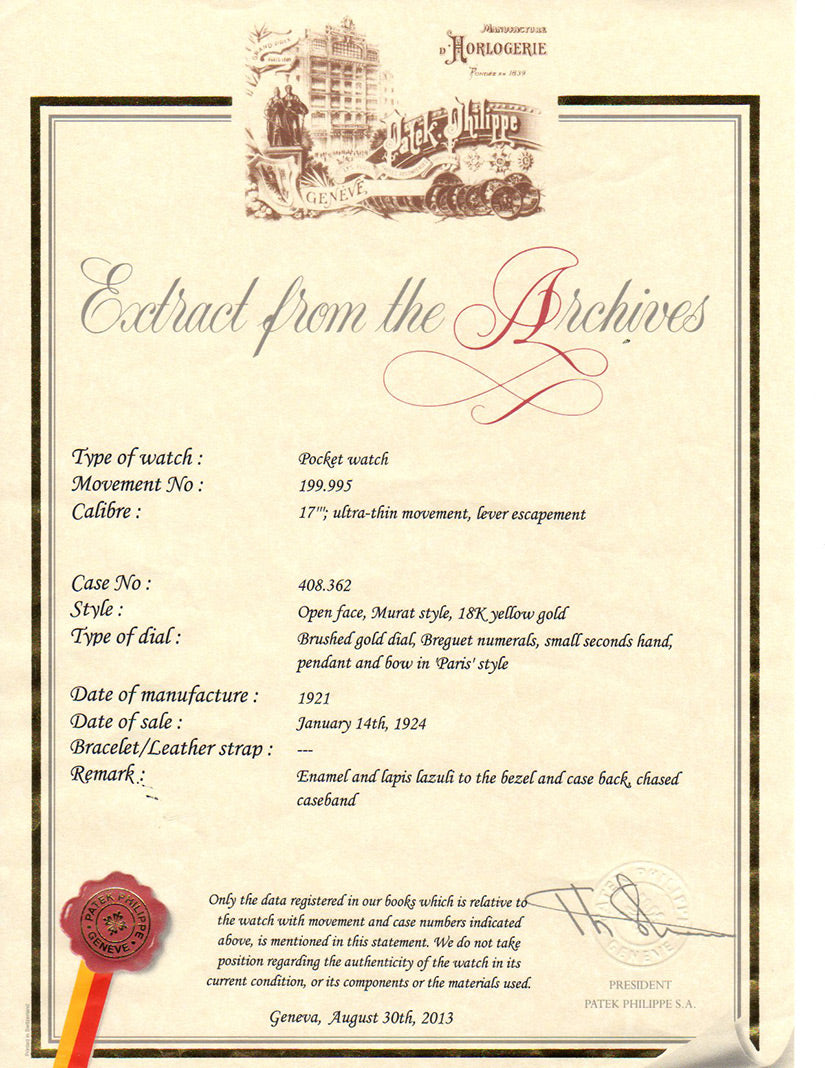 MANUFACTURE
D'HORLOGERIE
FONDÉE EN 1839
GRAND PRIX
PARIS 1889
Patek Philippe
GENÈVE,
Extract from the Archives
Type of watch : Pocket watch
Movement No : 199.995
Calibre : 17'''; ultra-thin movement, lever escapement
Case No : 408.362
Style : Open face, Murat style, 18K yellow gold
Type of dial : Brushed gold dial, Breguet numerals, small seconds hand,
pendant and bow in 'Paris' style
Date of manufacture : 1921
Date of sale : January 14th, 1924
Bracelet/Leather strap : ---
Remark : Enamel and lapis lazuli to the bezel and case back, chased
caseband
Only the data registered in our books which is relative to
the watch with movement and case numbers indicated
above, is mentioned in this statement. We do not take
position regarding the authenticity of the watch in its
current condition, or its components or the materials used.
Geneva, August 30th, 2013
PATEK PHILIPPE
GENEVE
PATEK PHILIPPE
GENEVE
PRESIDENT
PATEK PHILIPPE S.A.
Printed in Switzerland